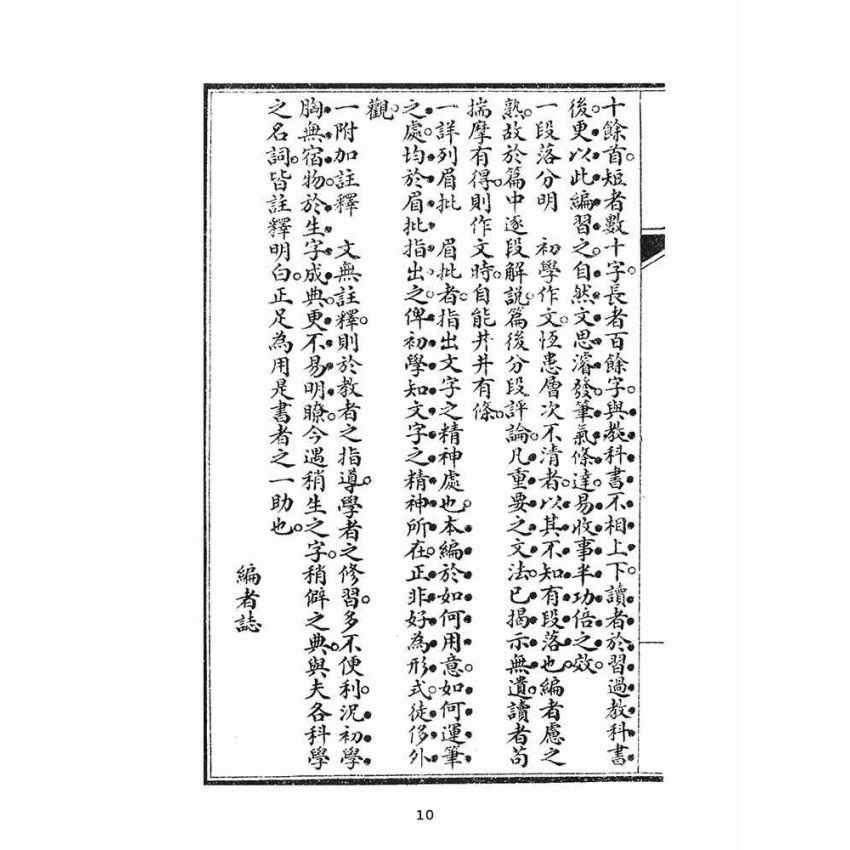 十餘首。短者數十字。長者百餘字。與教科書不相上下。讀者於習過教科書
後。更以此編習之。自然文思濬發。筆氣條達。易收事半功倍之效。
一段落分明　初學作文。恆患層次不清者。以其不知有段落也。編者慮之
熟。故於篇中逐段解說。篇後分段評論。凡重要之文法。已揭示無遺。讀者苟
揣摩有得。則作文時。自能井井有條。
一詳列眉批　眉批者。指出文字之精神處也。本編於如何用意。如何運筆
之處。均於眉批指出之。俾初學知文字之精神所在。正非好為形式。徒侈外
觀。
一附加註釋　文無註釋。則於教者之指導。學者之修習。多不便利。況初學
胸無宿物。於生字成典。更不易明瞭。今遇稍生之字。稍僻之典。與夫各科學
之名詞。皆註釋明白。正足為用是書者之一助也。
編者誌
10